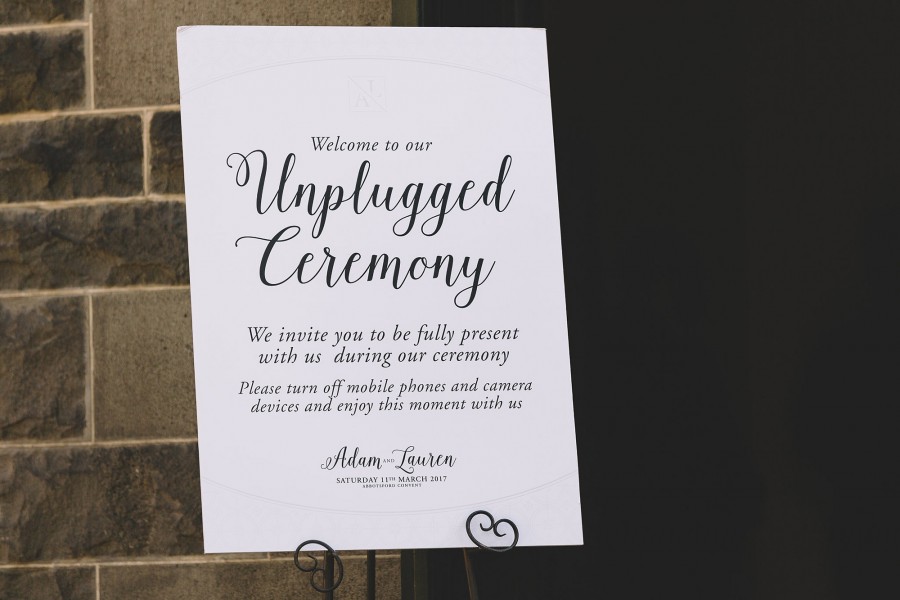 Welcome to our
Unplugged
Ceremony
We invite you to be fully present
with us during our ceremony
Please turn off mobile phones and camera
devices and enjoy this moment with us
Adam AND Lauren
SATURDAY 11TH MARCH 2017
ABBOTSFORD CONVENT